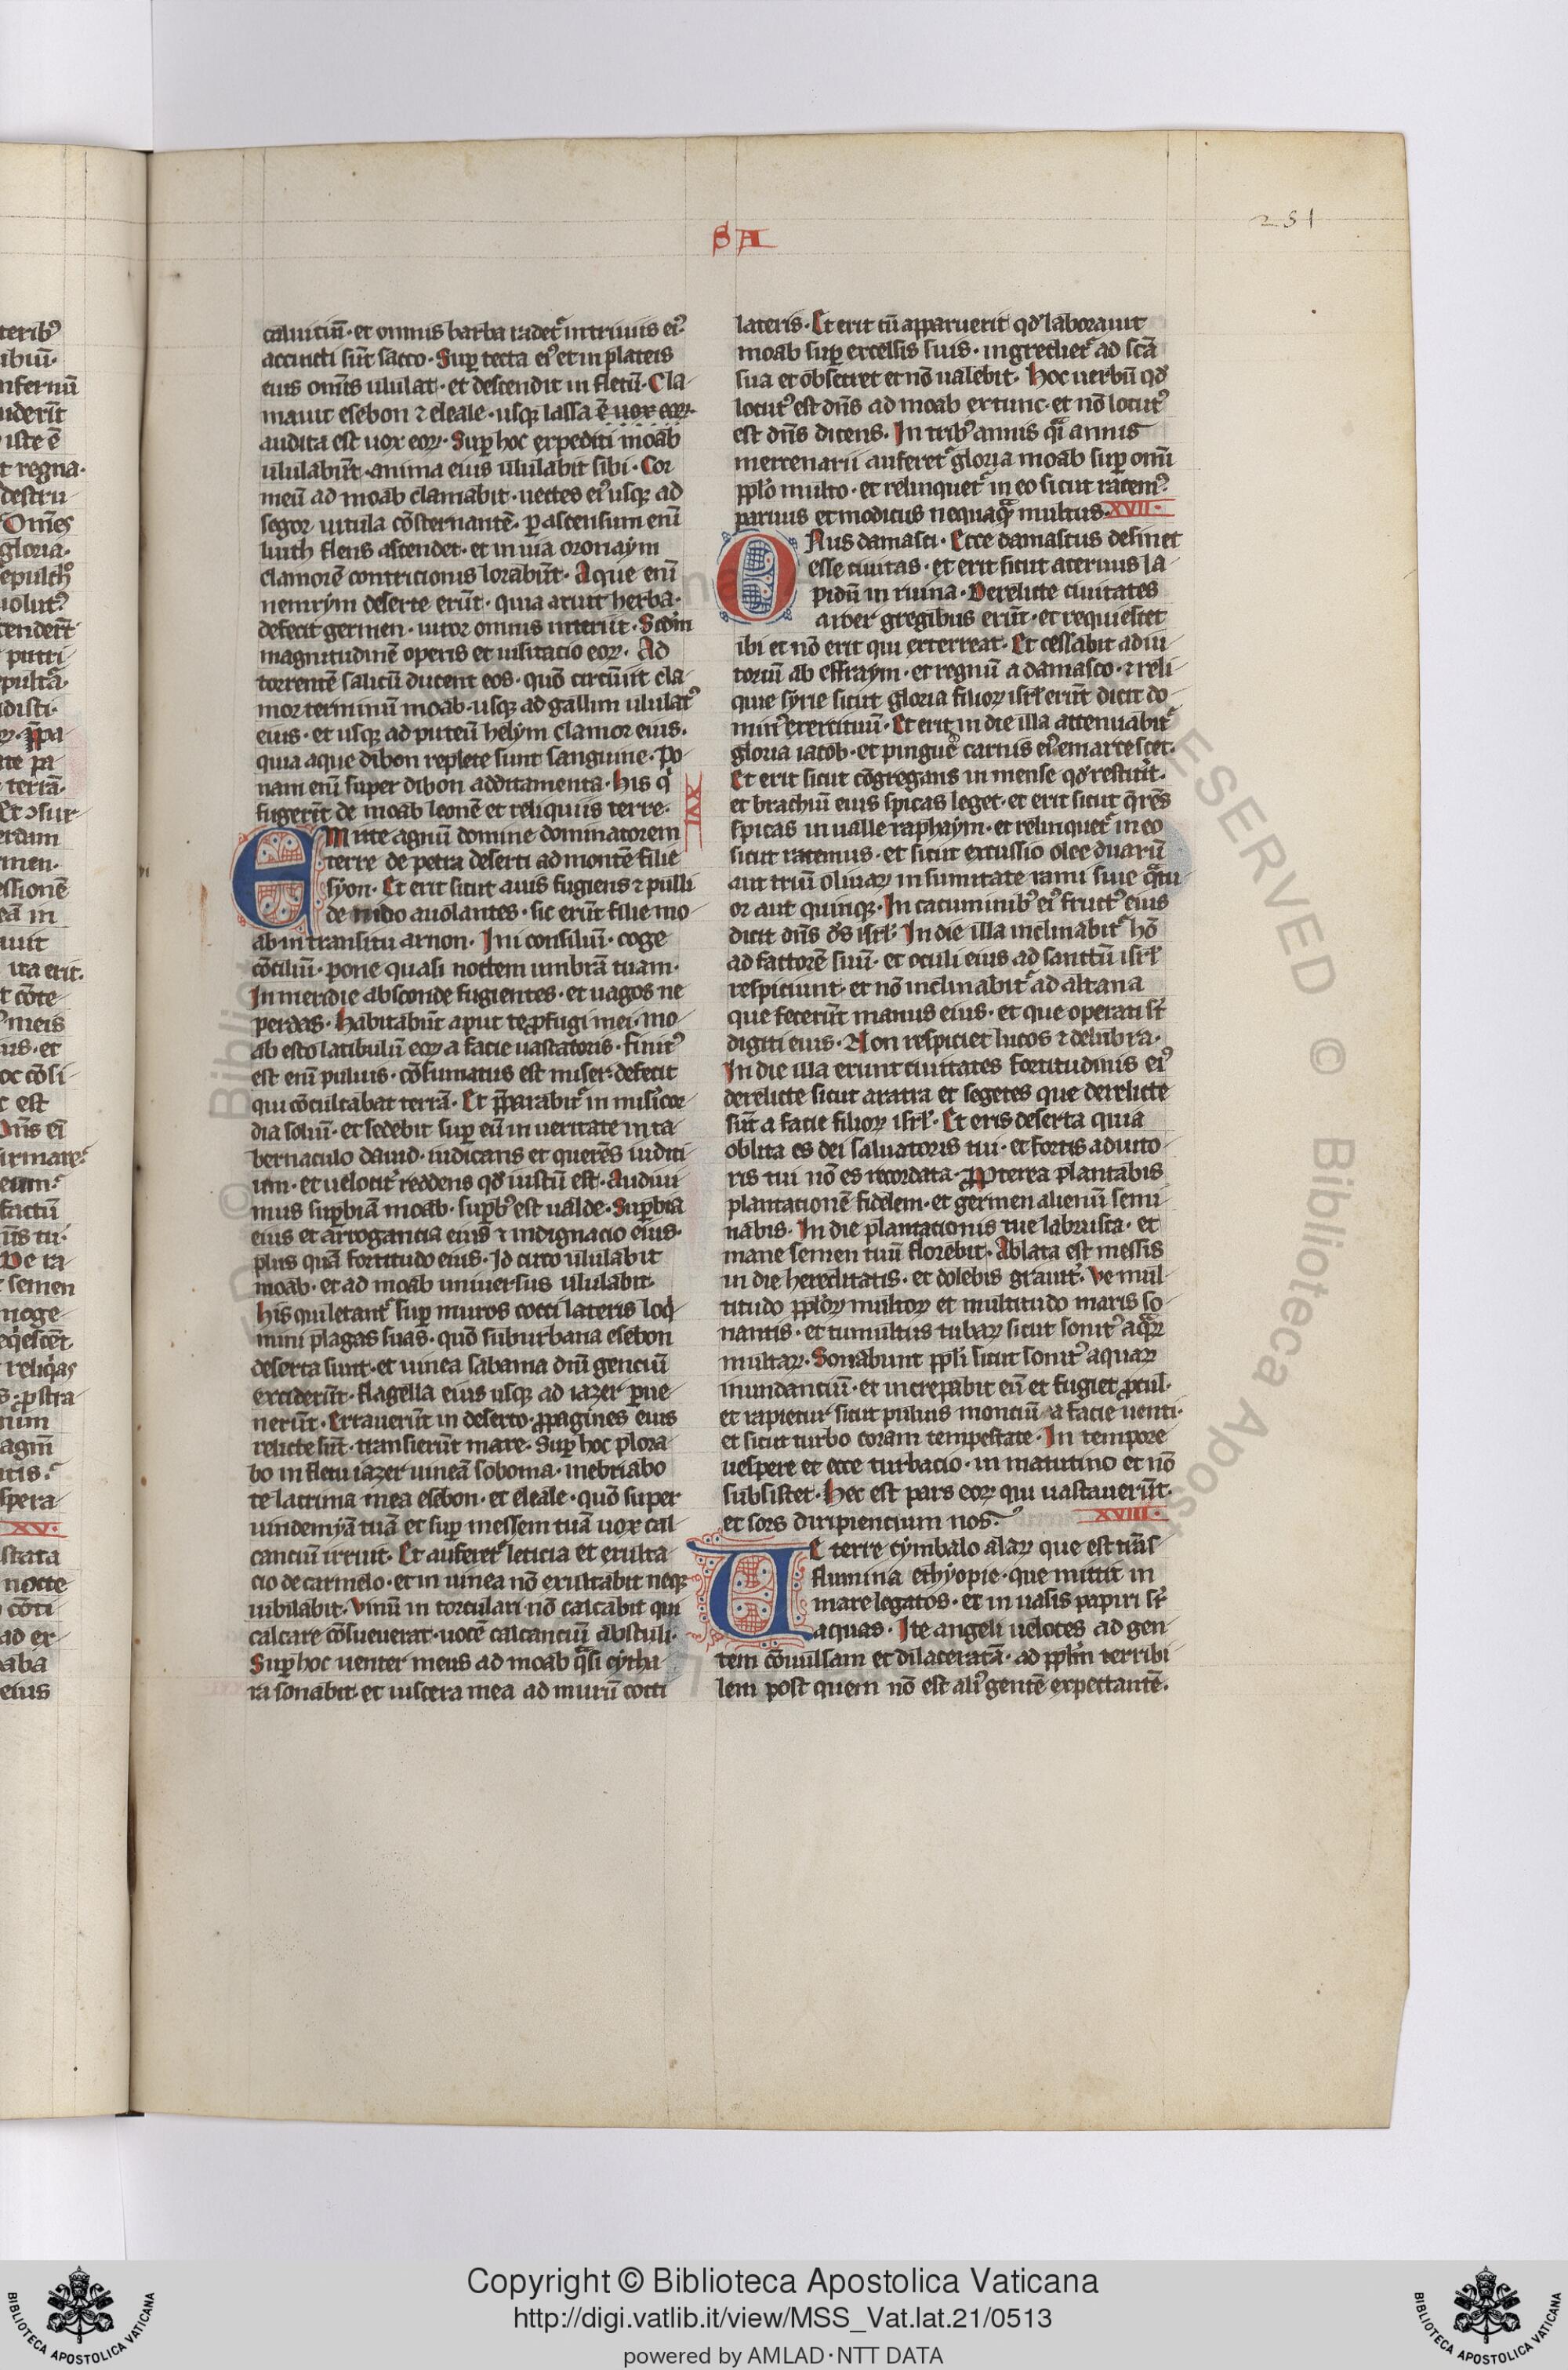 SA
231
caluiciũ · et omnis barba radet᷑ in triuiis ei᷒
accincti sũt sacco · Sup̱ tecta ei᷒ et in plateis
eius om̃is ululat · et descendit in fletũ · Cla-
mauit esebon ⁊ eleale · usqꝫ iassa ẽ uox eoꝝ ·
audita est uox eoꝝ · Sup̱ hoc expediti moab
ululabũt · anima eius ululabit sibi · Cor
meũ ad moab clamabit · uectes ei᷒ usqꝫ ad
segor uitula cõsternantẽ · ꝑ ascensum enĩ
luith flens ascendet · et in uia oronaym
clamorẽ contricionis lorabũt · Aque enĩ
nemrym deserte erũt · quia aruit herba ·
defecit germen · uiror omnis interiit · Scd̃m
magnitudinẽ operis et uisitacio eoꝝ · Ad
torrentẽ salicũ ducent eos · quõ circũiit cla-
mor terminũ moab · usqꝫ ad gallim ululat᷒
eius · et usqꝫ ad puteũ helym clamor eius ·
quia aque dibon replete sunt sanguine · Po-
nam enĩ super dibon additamenta · his q̇
fugerĩt de moab leonẽ et reliquiis terre ·
XVI
Emitte agnũ domine dominatorem
terre de petra deserti ad montẽ filie
syon · Et erit sicut auis fugiens ⁊ pulli
de nido auolantes · sic erũt filie mo-
ab in transitu arnon · Ini consiliũ · coge
cõciliũ · pone quasi noctem umbrã tuam ·
In meridie absconde fugientes · et uagos ne
perdas · Habitabũt aput te ꝓfugi mei · mo-
ab esto latibulũ eoꝝ a facie uastatoris · finit᷒
est enĩ puluis · cõsumatus est miser · defecit
qui cõculcabat terrã · Et p̃parabit᷑ in mis̃icor-
dia soliũ · et sedebit sup̱ eũ in ueritate in ta-
bernaculo dauid · iudicans et querẽs iudici-
um · et uelocit᷑ reddens qd̕ iustũ est · Audiui-
mus sup̱biã moab · sup̱b᷒ est ualde · Sup̱bia
eius et arrogancia eius ⁊ indignacio eius ·
plus quã fortitudo eius · Id circo ululabit
moab · et ad moab uniuersus ululabit ·
his qui letant᷑ sup̱ muros cocti lateris loq̇-
mini plagas suas · quõ suburbana esebon
deserta sunt · et uinea sabama dñi genciũ
exciderũt · flagella eius usqꝫ ad iazer ꝑue-
nerũt · Errauerũt in deserto · ꝓpagines eius
relicte sũt · transierũt mare · Sup̱ hoc plora-
bo in fletu iazer uineã soboma · inebriabo
te lacrima mea esebon · et eleale · quõ super
uindemyã tuã et sup̱ messem tuã uox cal-
canciũ irruit · Et auferet᷑ leticia et exulta-
cio de carmelo · et in uinea nõ exultabit neqꝫ
iubilabit · Vinũ in torculari nõ calcabit qui
calcare cõsueuerat · uocẽ calcanciũ abstuli ·
Sup̱ hoc uenter meus ad moab q̃si cytha-
ra sonabit · et uiscera mea ad murũ cocti
lateris · Et erit cũ apparuerit qd̕ laborauit
moab sup̱ excelsis suis · ingrediet᷑ ad sc̃a
sua et obsecret et nõ ualebit · Hoc uerbũ qd̕
locut᷒ est dñs ad moab ex tunc · et nõ locut᷒
est dñs dicens · In trib᷒ annis q̃i annis
mercenarii auferet᷑ gloria moab sup̱ omĩ
pplo᷒ multo · et relinquet᷑ in eo sicut racem᷒
paruus et modicus nequaq̃ multus · XVII ·
Onus damasci · Ecce damascus desinet
esse ciuitas · et erit sicut aceruus la-
pidũ in ruina · Derelicte ciuitates
aroer gregibus erũt · et requiescet
ibi et nõ erit qui exterreat · Et cessabit adiu-
toriũ ab effraym · et regnũ a damasco · ⁊ reli-
quie syrie sicut gloria filioꝝ isrl̕ erũt dicit do-
min᷒ exercituũ · Et erit in die illa attenuabit᷑
gloria iacob · et pingue carnis ei᷒ emarcescet ·
Et erit sicut cõgregans in messe qd̕ restiterit ·
et brachiũ eius spicas leget · et erit sicut q̃rẽs
spicas in ualle raphaym · et relinquet᷑ in eo
sicut racemus · et sicut excussio olee duarũ
aut triũ oliuaꝝ in sumitate rami siue q̃tu-
or aut quinqꝫ · In cacuminib᷒ ei᷒ fruct᷒ eius
dicit dñs d̕s isrl̕ · In die illa inclinabit᷑ hõ
ad factorẽ suũ · et oculi eius ad sanctũ isrl̕
respiciunt · et nõ inclinabit᷑ ad altaria
que fecerũt manus eius · et que operati sũt
digiti eius · Non respiciet lucos ⁊ delubra ·
In die illa erunt ciuitates fortitudinis ei᷒
derelicte sicut aratra et segetes que derelicte
sũt a facie filioꝝ isrl̕ · Et eris deserta quia
oblita es dei saluatoris tui · et fortis adiuto-
ris tui nõ es recordata · Ꝓpterea plantabis
plantacionẽ fidelem · et germen alienũ semi-
nabis · In die plantacionis tue labrusca · et
mane semen tuũ florebit · Ablata est messis
in die hereditatis · et dolebis grauit᷑ · Ve mul-
titudo pploꝝ multoꝝ et multitudo maris so-
nantis · et tumultus turbaꝝ sicut sonit᷒ aq̃ꝝ
multaꝝ · Sonabunt ppli̕ sicut sonit᷒ aquaꝝ
inundanciũ · et increpabit eũ et fugiet ꝓcul ·
et rapietur sicut puluis monciũ a facie uenti ·
et sicut turbo coram tempestate · In tempore
uespere et ecce turbacio · in matutino et nõ
subsistet · Hec est pars eoꝝ qui uastauerũt
et sors diripiencium nos · XVIII ·
Ue terre cymbalo alaꝝ que est trãs
flumina ethyopie · que mittit in
mare legatos · et in uasis papiri sr̃
aquas · Ite angeli uelotes ad gen-
tem cõuulsam et dilaceratã · ad pplm̃ terribi-
lem post quem nõ est ali᷒ gentẽ expectantẽ ·
Copyright © Biblioteca Apostolica Vaticana
http://digi.vatlib.it/view/MSS_Vat.lat.21/0513
powered by AMLAD·NTT DATA
BIBLIOTECA APOSTOLICA VATICANA
BIBLIOTECA APOSTOLICA VATICANA